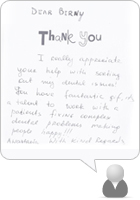 DEAR BERNY
Thank You
I really appreciate
your help with sorting
out my dental issues
You have fantastic gift
a talent to work with
patients fixing complex
dental problems making
people happy!!!
with kind regards